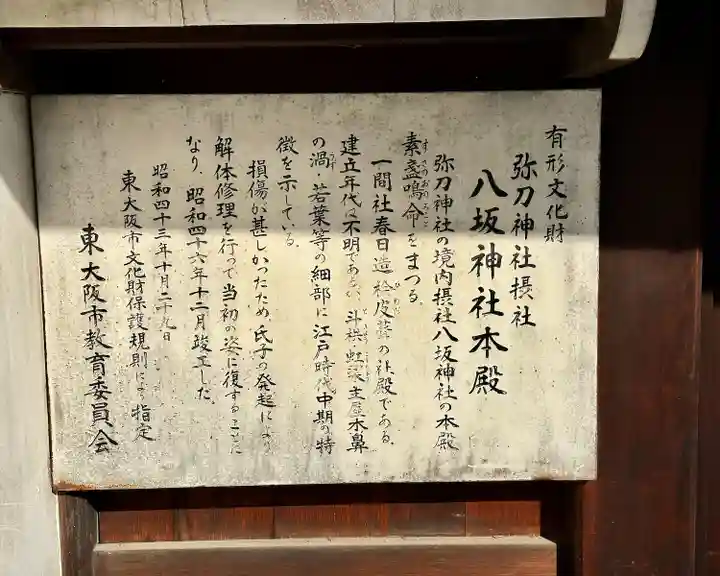 有形文化財
弥刀神社摂社
八坂神社本殿
弥刀神社の境内摂社八坂神社の本殿
素盞嗚命をまつる。
一間社春日造 桧皮葺の社殿である。
建立年代は不明であるが、斗栱、虹梁、主屋木鼻
の渦・若葉等の細部に江戸時代中期の特
徴を示している。
損傷が甚しかったため、氏子の発起により
解体修理を行って当初の姿に復することに
なり、昭和四十六年十二月竣工した。
昭和四十三年十月二十九日
東大阪市文化財保護規則により指定
東大阪市教育委員会